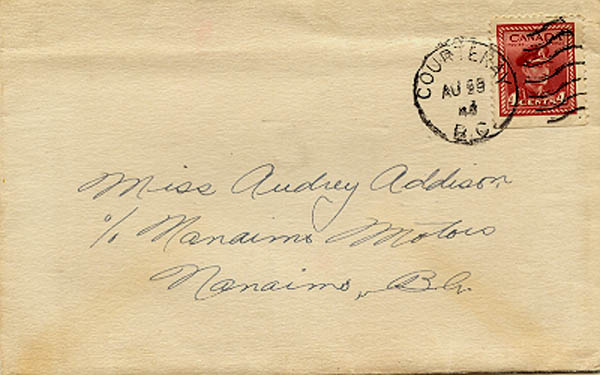 CANADA
4 CENTS 4
COURTENAY
AU
B.C.
Miss Audrey Addison
c/o Nanaimo Motors
Nanaimo, B.C.